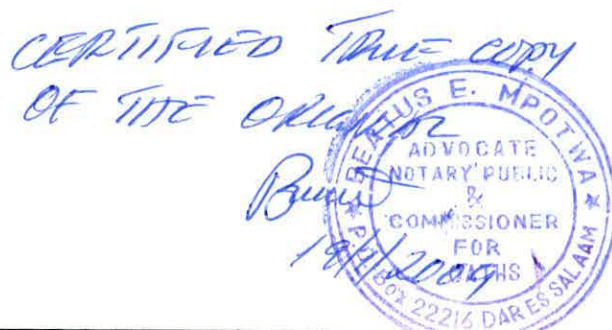 CERTIFIED TRUE COPY
OF THE ORIGINAL
BEATUS E. MPOTWA
ADVOCATE
NOTARY PUBLIC
&
COMMISSIONER
FOR
OATHS
P.O. BOX 22216 DAR ES SALAAM